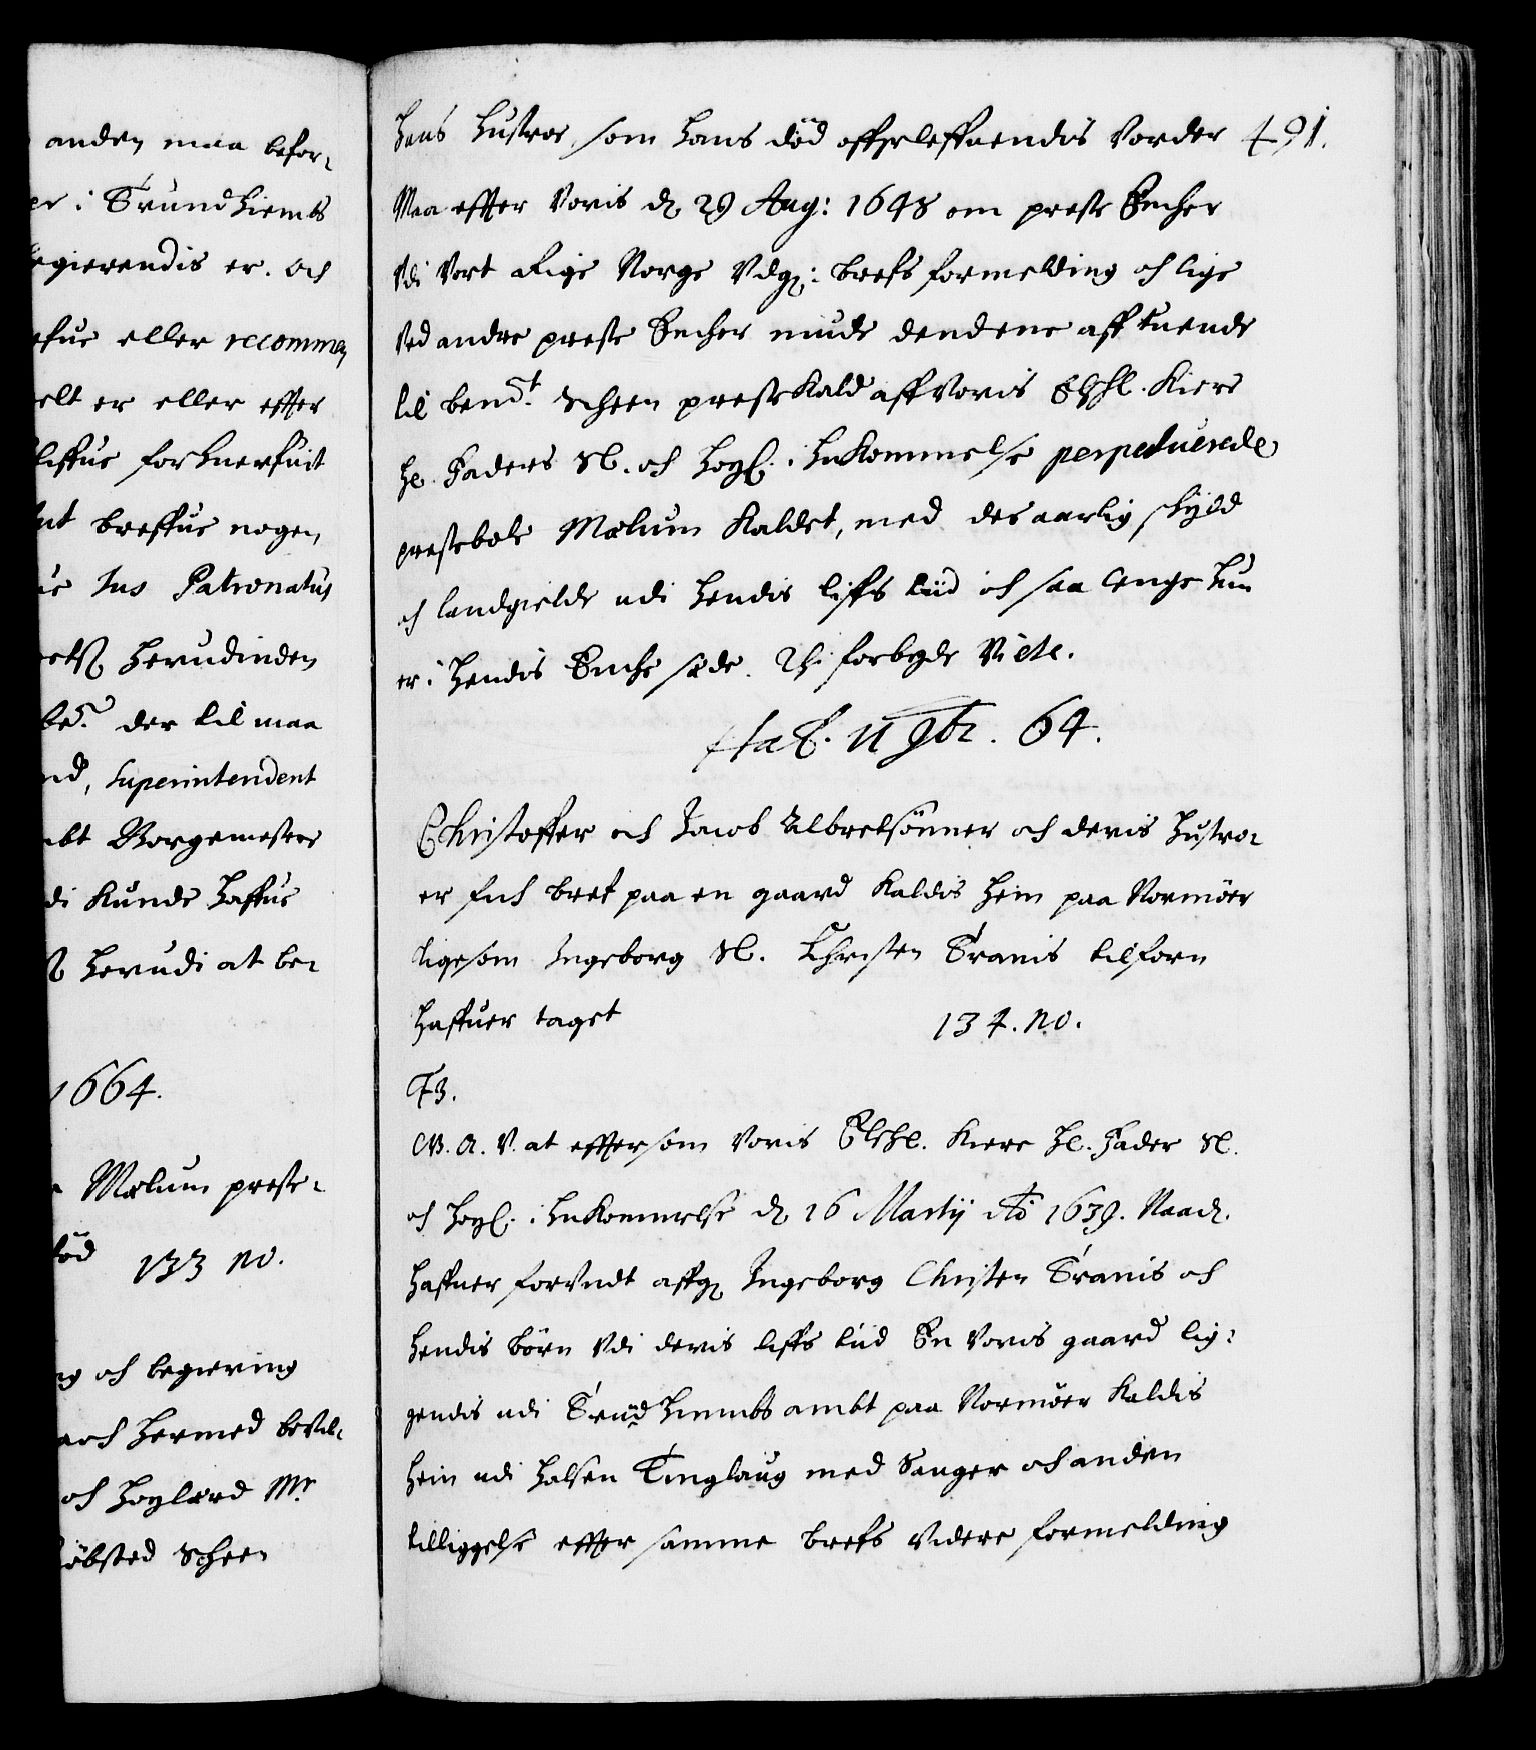 anden maa befor-
er i Trundhiembs
regierendis er. och
efue eller recommen
elt er eller effter
liffue forhuerfuit
int breffue nogen
ue Jus Patronatus
herudinden
be. der til maa
nd, Superintendent
mbt Borgemester
di kunde haffue
herudi at be-
1664.
Mælum preste-
død 133 no.
ng och begiering
och hermed bevil-
och høylærd Mr
købsted Scheen
hans hustroe, som hans død offuerleffuendis vorder 491.
Maa effter voris d. 29 Aug: 1648 om preste Encher
vdi vort Rige Norge vdg: brefs formelding och lige
ved andre preste Encher niude dend ene aff tuende
til bemt. Scheen prestekald aff voris Elschl. Kiere
he. Faders Sl. och høyl. ihukommelse perpetuerede
prestebole Mælum kaldet, med des aarlig skyld
och landgielde udi hendis liffs tiid och saa lenge hun
er i hendis Enche sæde. Thi forbyde Vi etc.
Haf. 11 9br. 64.
Christoffer och Jacob Albretsønner och deris hustro-
er fich bref paa en gaard kaldis Hein paa Normøer
ligesom Ingeborg Sl. Christen Tranis tilforn
haffuer taget 134. no.
F3.
G. A. V. at efftersom voris Elschl. Kiere he. Fader Sl.
och høyl. ihukommelse d. 16 Martij Ao 1639. Naad.
haffuer forundt affg. Ingeborg Christen Tranis och
hendis børn vdi deris liffs tiid En voris gaard lig-
gendis udi Trundhiembs ambt paa Normøer kaldis
Hein udi Halsen Tinglaug med Sauger och anden
tilliggelse effter samme brefs videre formelding